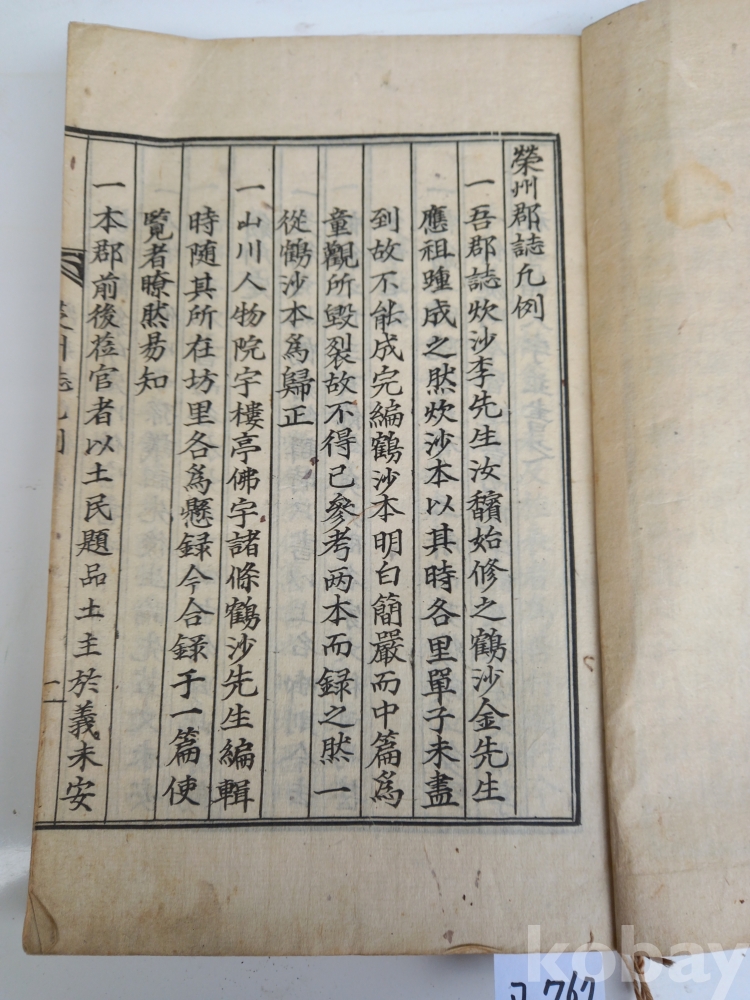 榮州郡誌凡例
一吾郡誌炊沙李先生汝馪始修之鶴沙金先生
應祖踵成之然炊沙本以其時各里單子未盡
到故不能成完編鶴沙本明白簡嚴而中篇爲
童觀所毁裂故不得已參考两本而録之然一
從鶴沙本爲歸正
一山川人物院宇樓亭佛宇諸條鶴沙先生編輯
時随其所在坊里各爲懸録今合録于一篇使
覧者瞭然易知
一本郡前後莅官者以土民題品土主於義未安
kobay
767